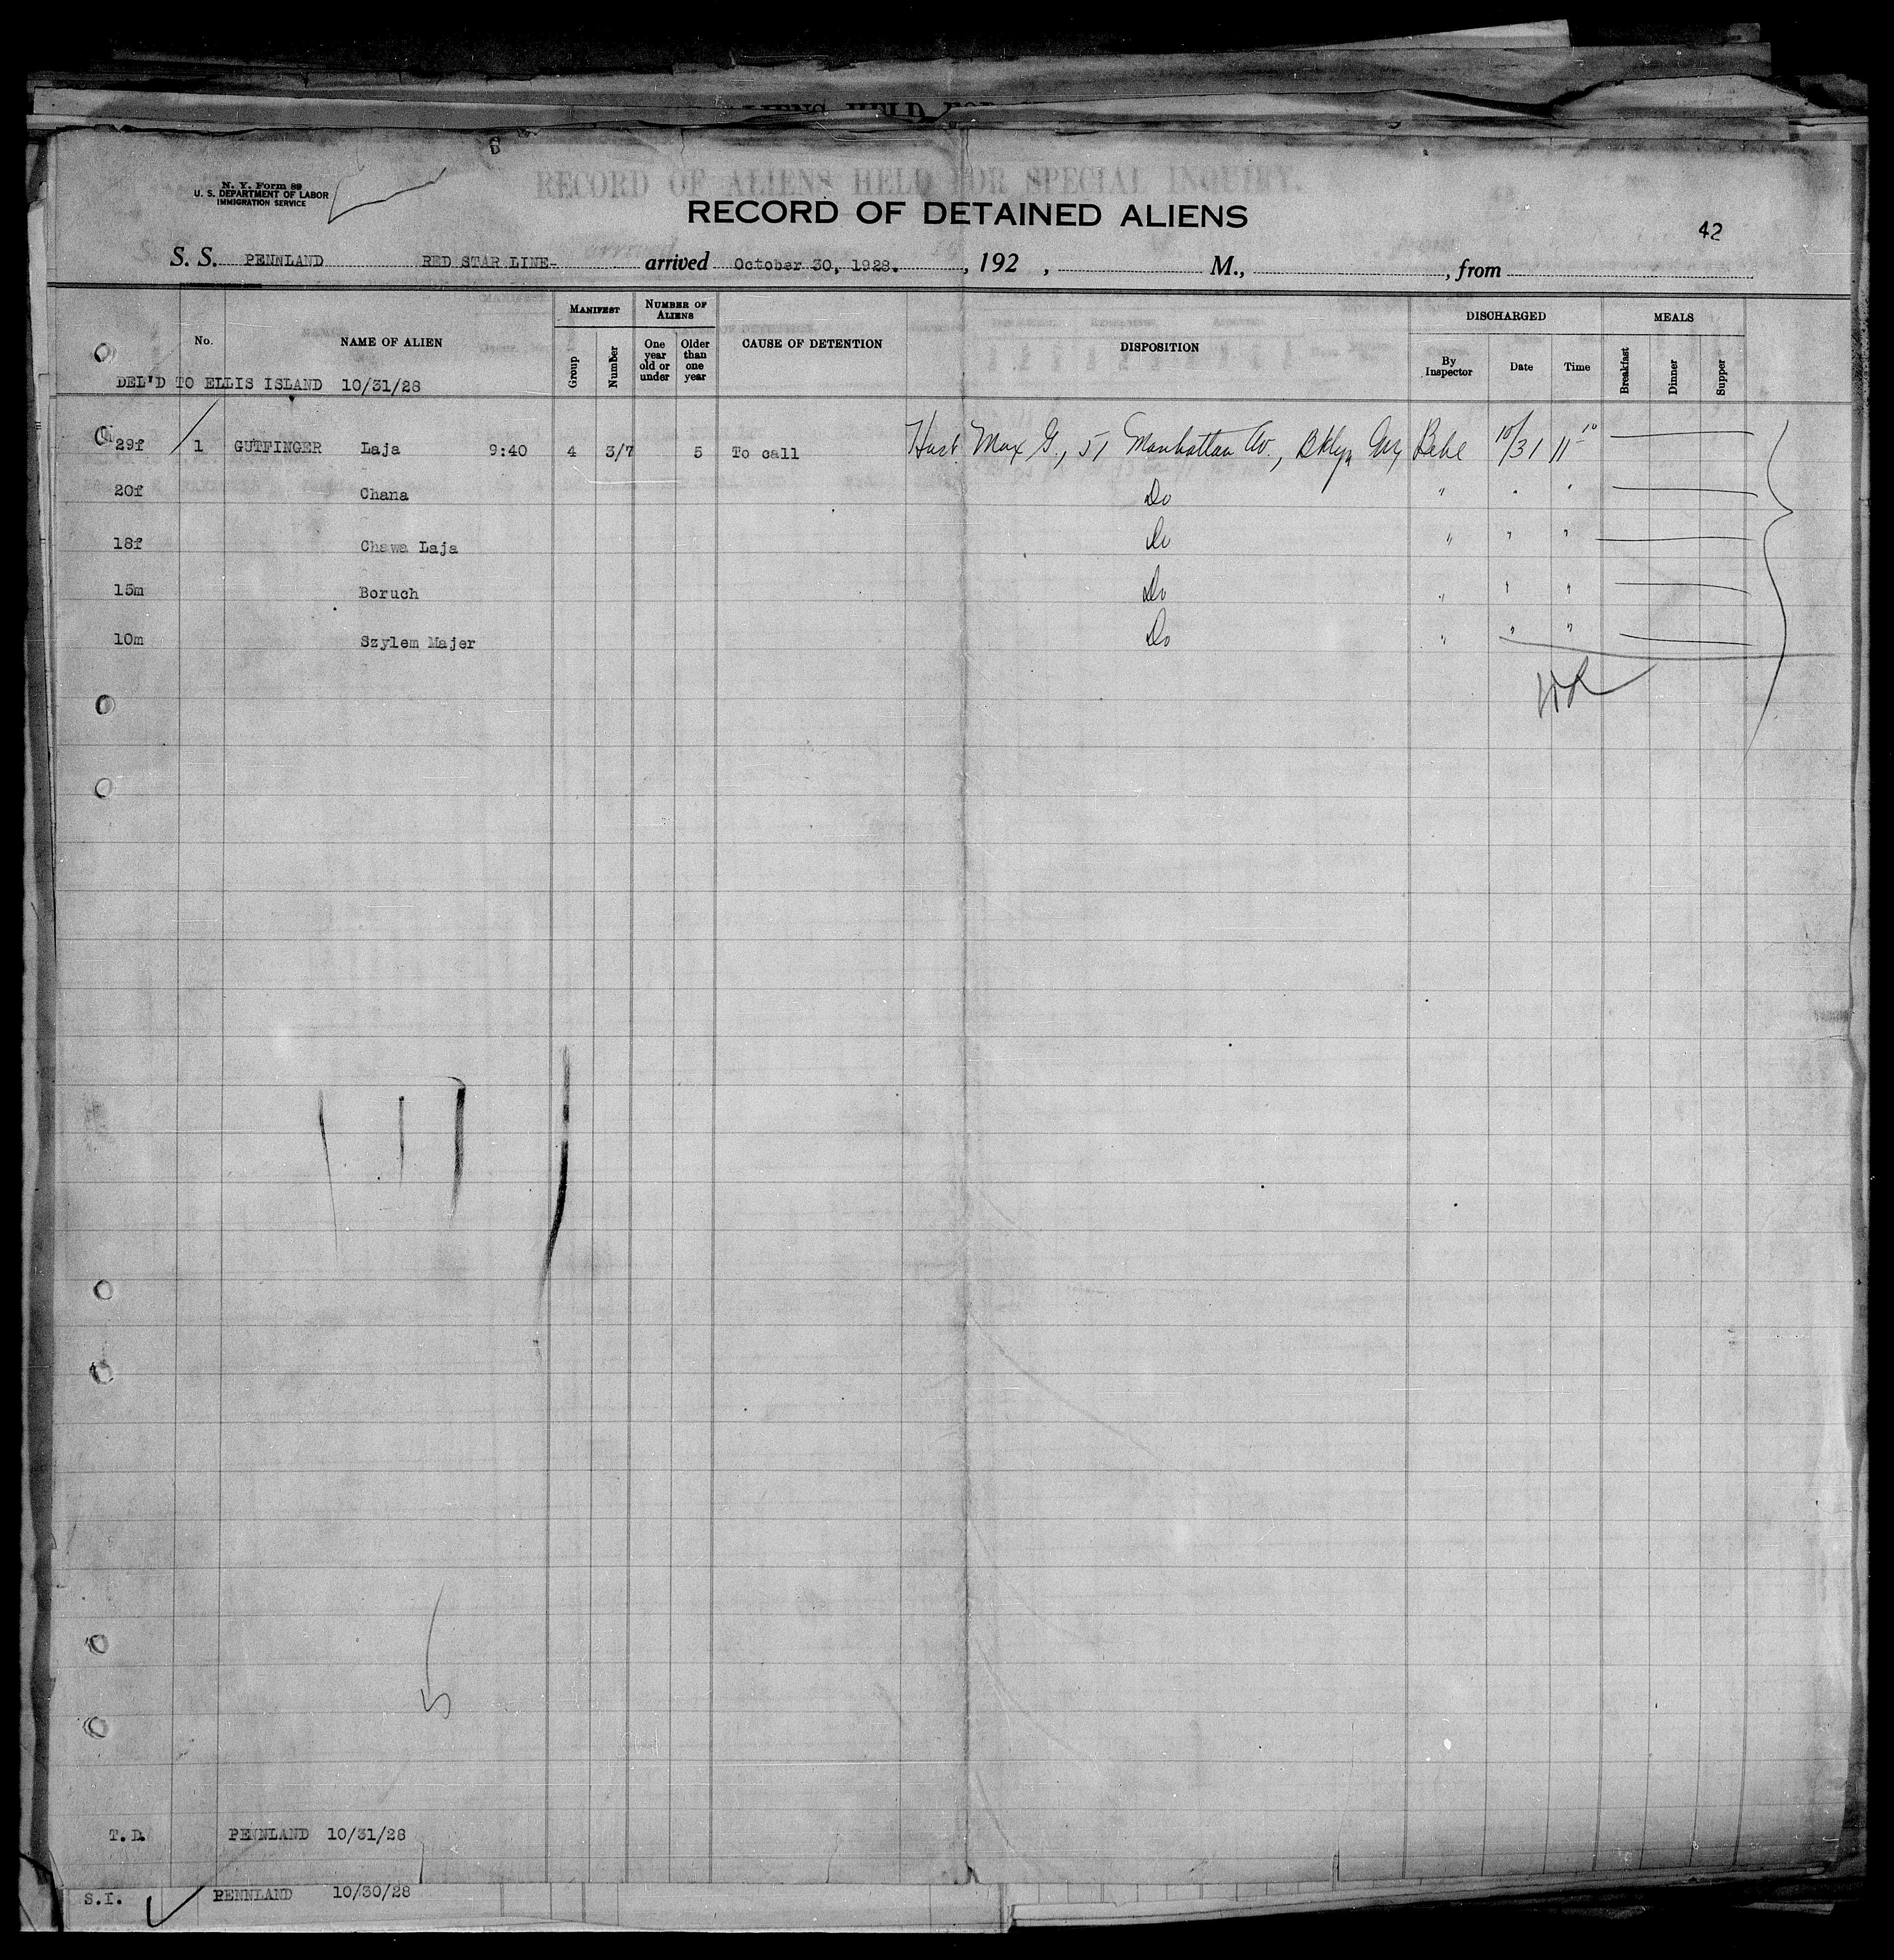 ALIENS HELD FOR
N. Y. Form 89
U. S. DEPARTMENT OF LABOR
IMMIGRATION SERVICE
RECORD OF ALIENS HELD FOR SPECIAL INQUIRY.
RECORD OF DETAINED ALIENS
42
S. S. PENNLAND RED STAR LINE- arrived October 30, 1928. , 192 , M., , from
No. NAME OF ALIEN MANIFEST Group Number NUMBER OF ALIENS One year old or under Older than one year CAUSE OF DETENTION DISPOSITION DISCHARGED By Inspector Date Time MEALS Breakfast Dinner Supper
DEL'D TO ELLIS ISLAND 10/31/28
29f 1 GUTFINGER Laja 9:40 4 3/7 5 To call Husb Max G., 51 Manhattan Av., Bklyn 10/31 11 10
20f Chana Do " " "
18f Chawa Laja Do " " "
15m Boruch Do " " "
10m Szylem Majer Do " " "
T.D. PENNLAND 10/31/28
S.I. PENNLAND 10/30/28